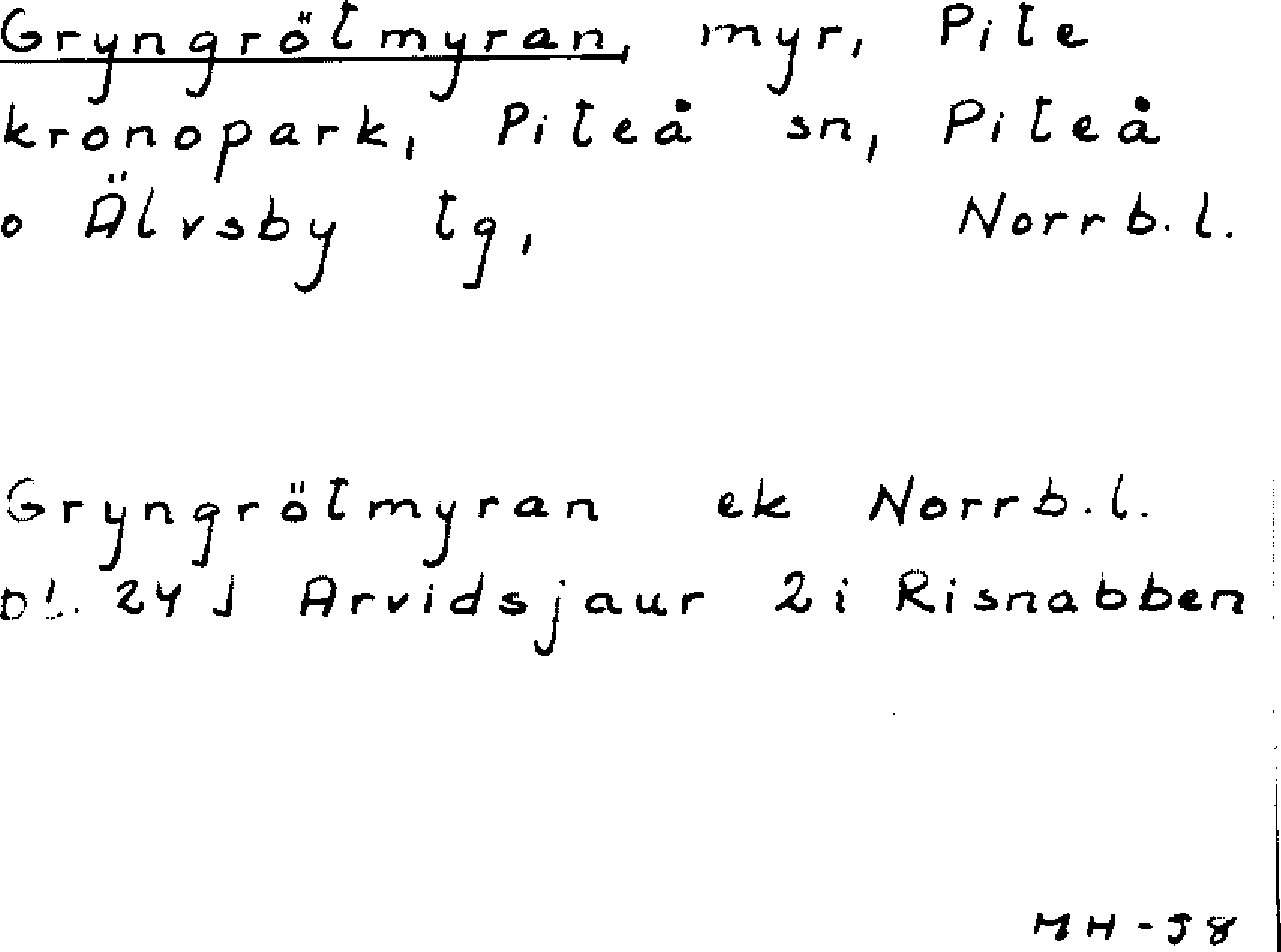 Gryngrötmyran, myr, Pite
kronopark, Piteå sn, Piteå
o Älvsby tg, Norrb.l.
Gryngrötmyran ek Norrb.l.
bl. 24 J Arvidsjaur 2i Risnabben